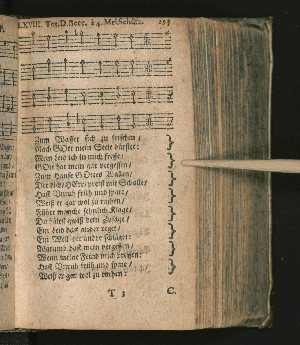 LXVIII. Ten. D. Bocc. à 4. Mel. Schütz. 293
Zum Wasser sich zu frischen/
Nach GOtt mein Seele dürstet:
Mein Leid ich in mich fresse/
GOtt hat mein gar vergessen/
Zum Hause GOttes Wallen/
Der dich/ HErr/ preist mit Schalle/
Hast Unruh früh und spate/
Weiß er gar wol zu rathen/
Führt manche sehnlich Klage/
Du hältst gwiß dein Zusage/
Ein Leid das ander reget/
Ein Well die andre schläget:
Warumb hast mein vergessen/
Wenn meine Feind mich
Hast Unruh früh und spate/
Weiß er gar wol zu rathen:
T 3 C.